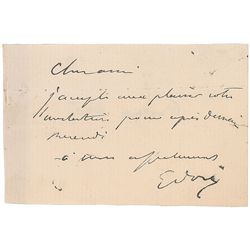 Cher ami
j'accepte avec plaisir votre
invitation pour après demain
mercredi
à vous